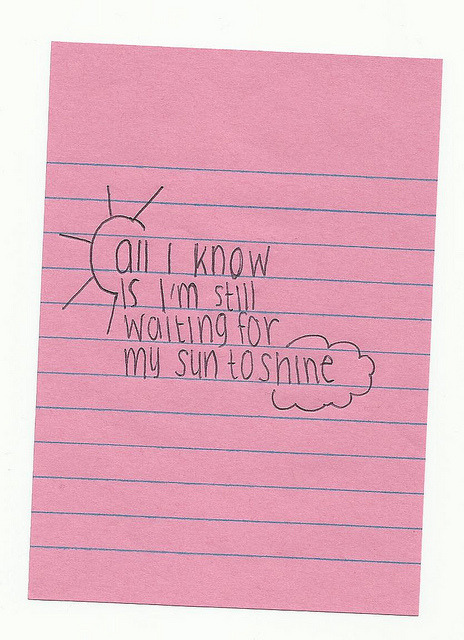 all I know
is I'm still
waiting for
my sun to shine